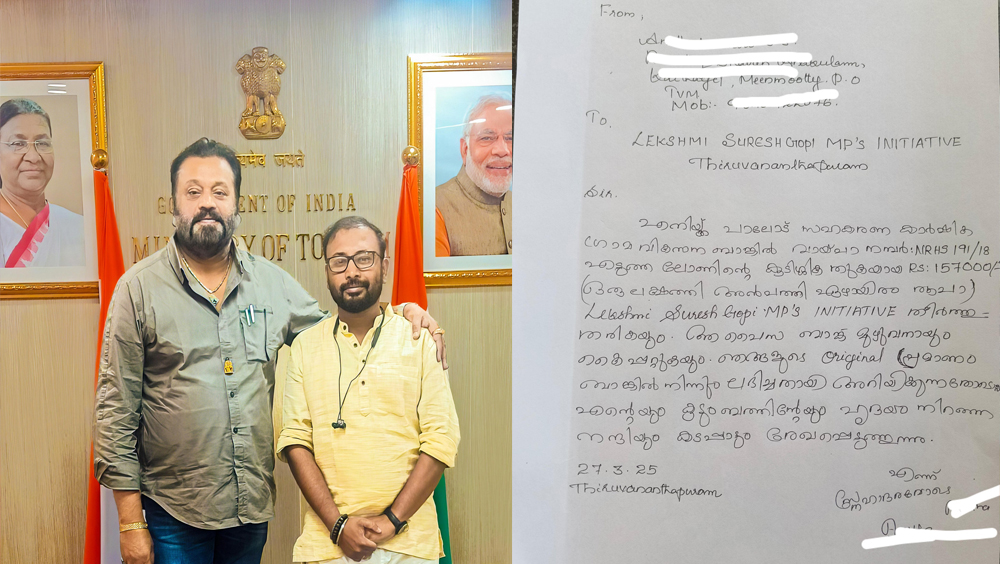 सत्यमेव जयते
GOVERNMENT OF INDIA
MINISTRY OF TO
From,
Meenmootty. P.O
TVM
Mob:-
To,
LEKSHMI SURESH GOPI MP'S INITIATIVE
Thiruvananthapuram
Sir,
എനിയ്ക്ക് പാലോട് സഹകരണ കാർഷിക
ഗ്രാമ വികസന ബാങ്കിൽ വായ്പാ നമ്പർ: NRHS 191/18
എടുത്ത ലോണിന്റെ കുടിശ്ശിക തുകയായ RS: 157000/-
(ഒരു ലക്ഷത്തി അൻപത്തി ഏഴായിരം രൂപാ)
Lekshmi Suresh Gopi MP'S INITIATIVE തീർത്തു
തരികയും. ആ പൈസ ബാങ്ക് മുഴുവനായും
കൈപ്പറ്റുകയും. ഞങ്ങളുടെ Original പ്രമാണം
ബാങ്കിൽ നിന്നും ലഭിച്ചതായി അറിയിക്കുന്നതോടൊപ്പം
എന്റെയും കുടുംബത്തിന്റേയും ഹൃദയം നിറഞ്ഞ
നന്ദിയും കടപ്പാടും രേഖപ്പെടുത്തുന്നു.
27.3.25
Thiruvananthapuram
എന്ന്
സ്നേഹാദരവോടെ